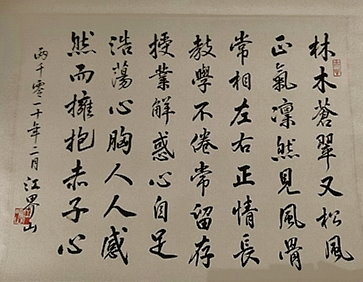 林木蒼翠又松風
正氣凜然見風骨
常相左右正情長
教學不倦常留存
授業解惑心自足
浩蕩心胸人人感
然而擁抱赤子心
兩千零一十年二月 江界山